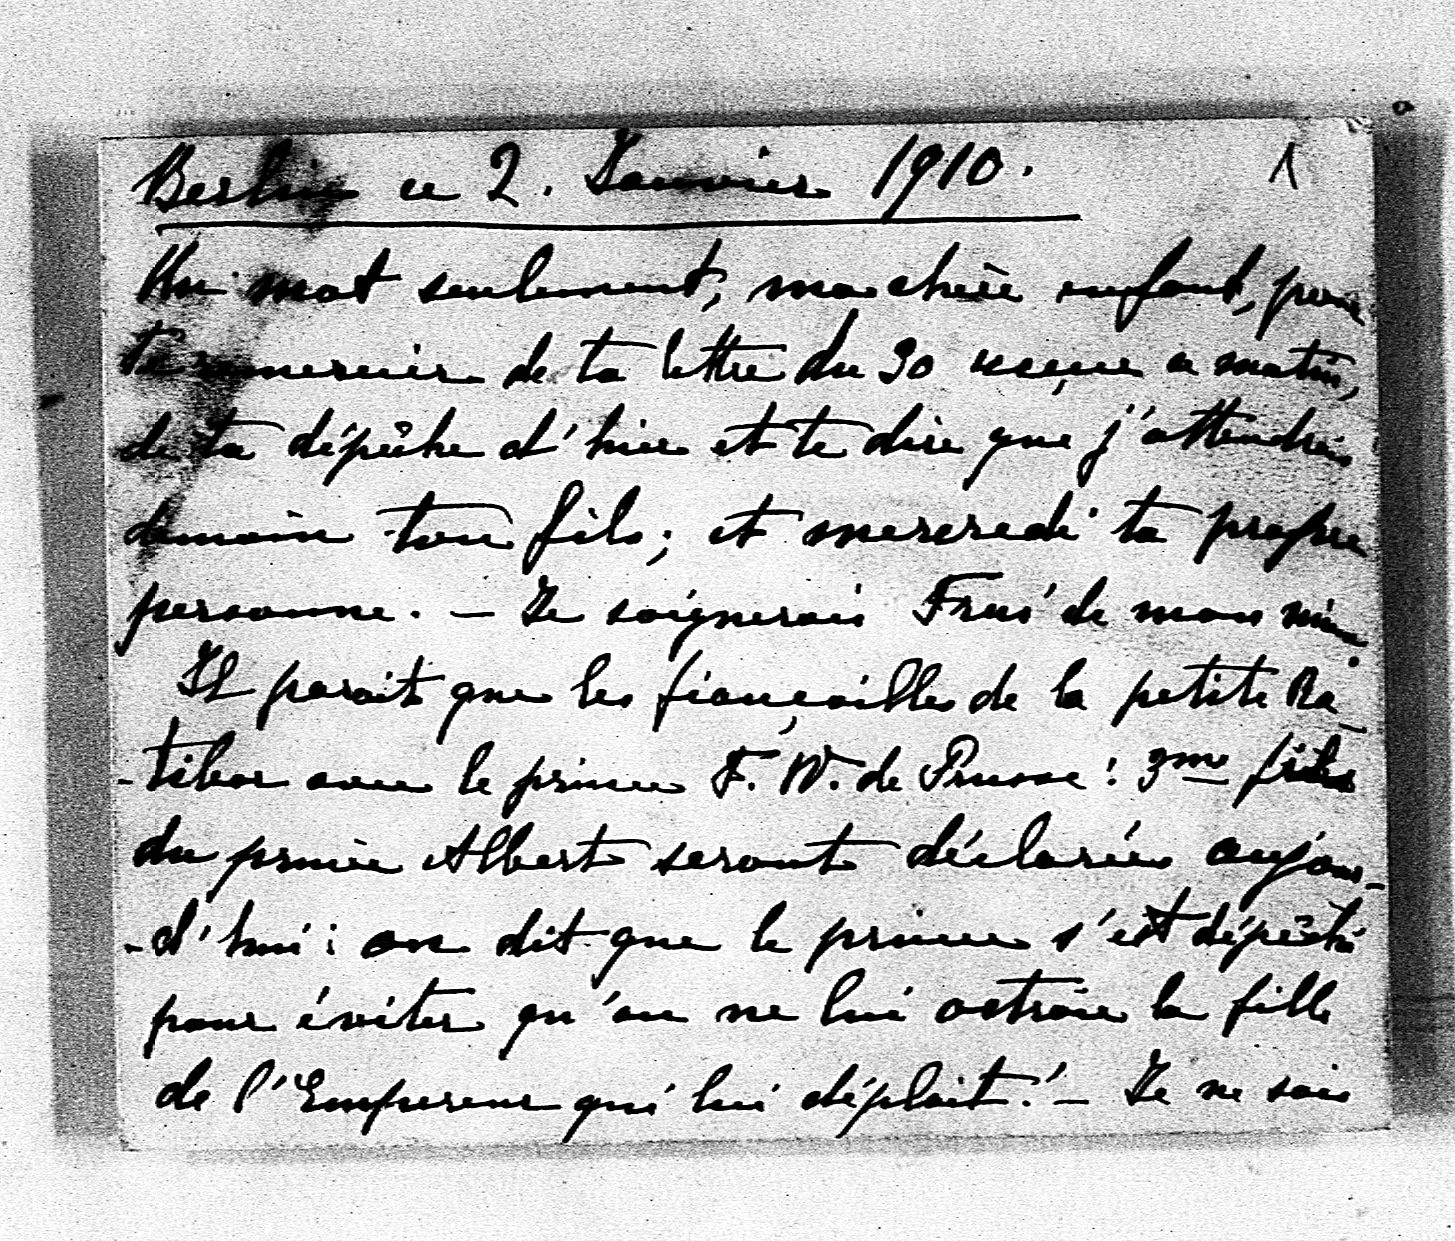 Berlin ce 2. Janvier 1910. 1
Un mot seulement, ma chère enfant, pour
te remercier de ta lettre du 30 reçue ce matin,
de ta dépêche d'hier et te dire que j'attendrais
demain ton fils; et mercredi ta propre
personne. — Je soignerais de mon mieux.
Il parait que les fiançailles de la petite Ra-
-tibor avec le prince F. W. de Prusse: 3me fils
du prince Albert seront déclarées aujour-
-d'hui: on dit que le prince s'est dépêché
pour éviter qu'on ne lui octroie la fille
de l'Empereur qui lui déplait! — Je ne sais